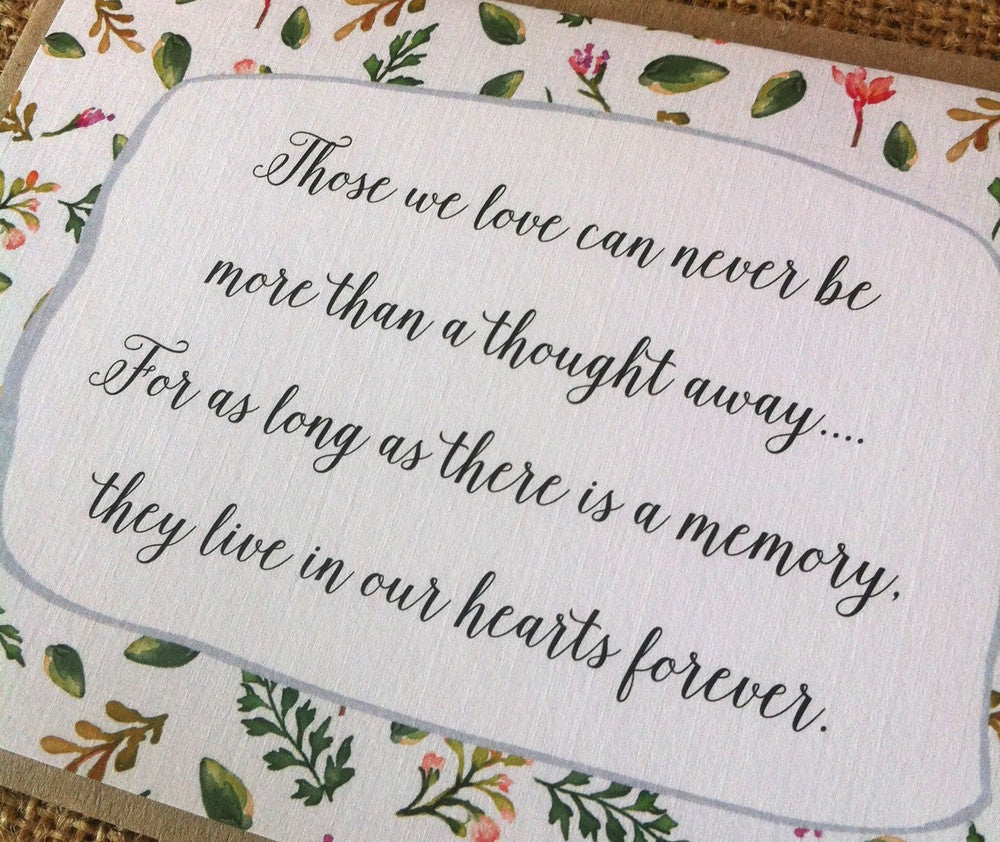 Those we love can never be
more than a thought away....
For as long as there is a memory,
they live in our hearts forever.